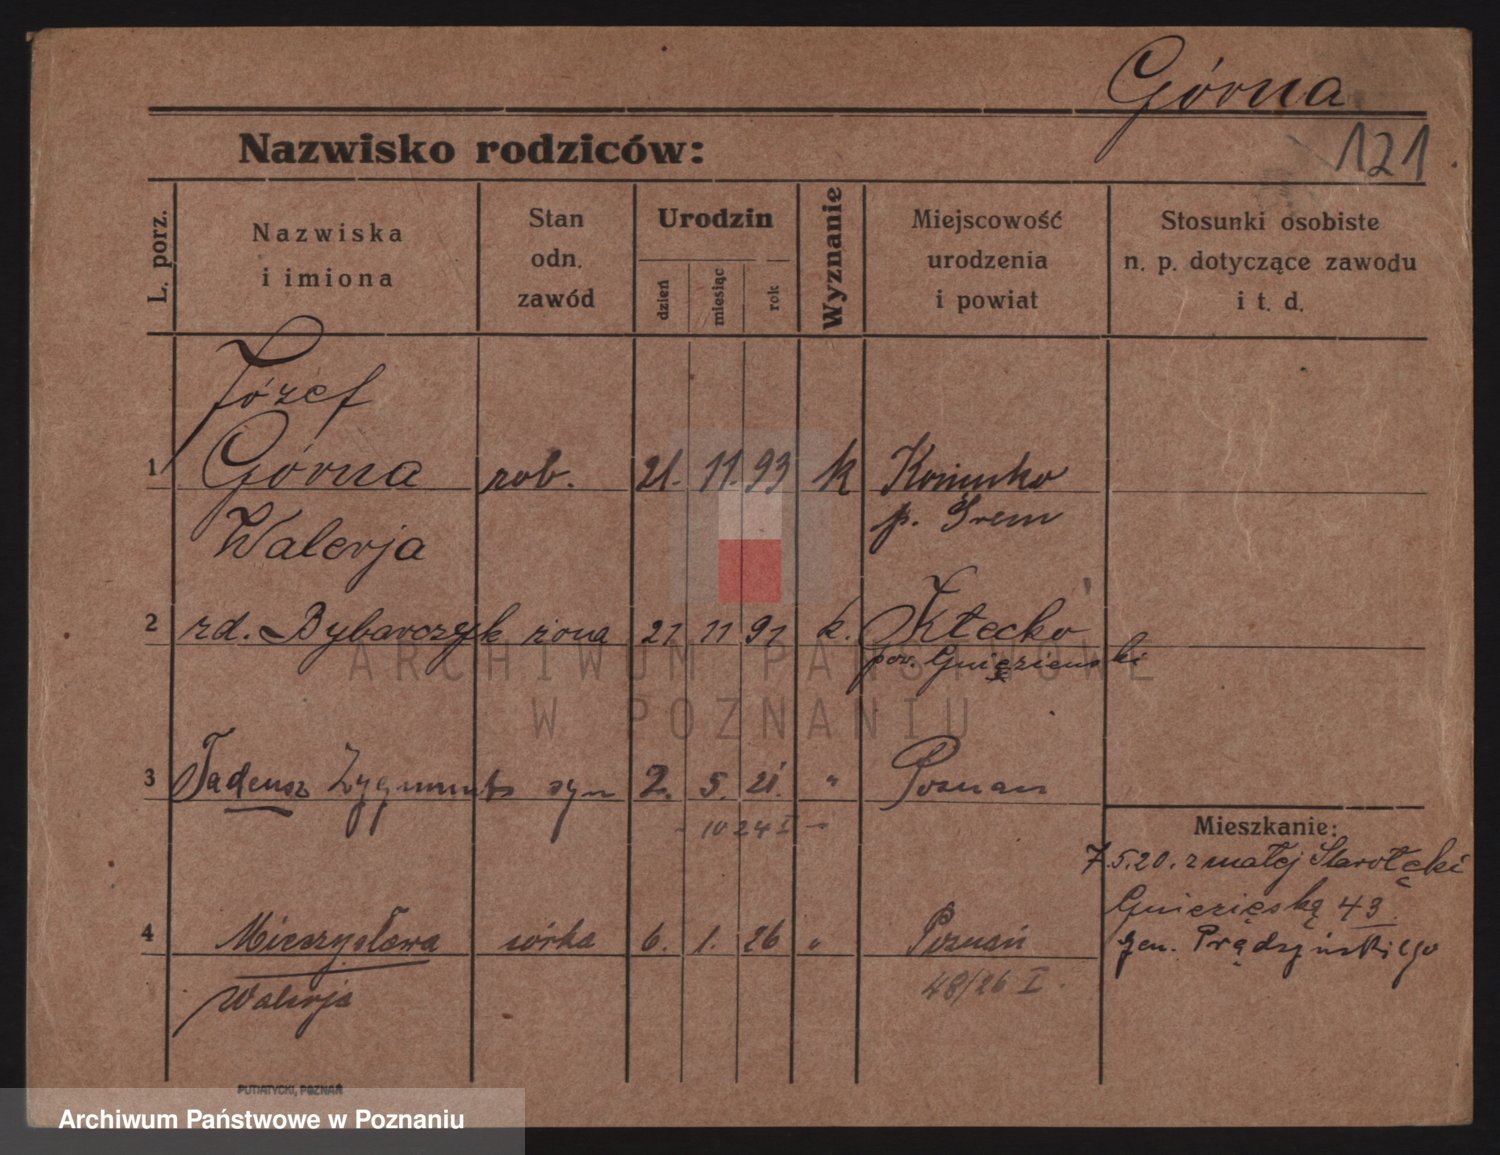 Górna
121
Nazwisko rodziców:
L. porz.
Nazwiska
i imiona
Stan
odn.
zawód
Urodzin
dzień
miesiąc
rok
Wyznanie
Miejscowość
urodzenia
i powiat
Stosunki osobiste
n. p. dotyczące zawodu
i t. d.
Józef
1 Górna rob. 21. 11. 93 k
p. Śrem
Walerja
2 rd. Rybarczyk żona 21 11 91 k. Kłecko
pow. Gnieźieński
3 Tadeusz Zygmunt syn 2. 5. 21. " Poznań
1024 I
Mieszkanie:
7.5.20. z małej Starołęki
Gnieźięską 43
gen. Prądzyńskiego
4 Mieczysława córka 6. 1. 26 " Poznań
Walerja
48/26 I.
PUTIATYCKI, POZNAŃ
ARCHIWUM PAŃSTWOWE
W POZNANIU
Archiwum Państwowe w Poznaniu